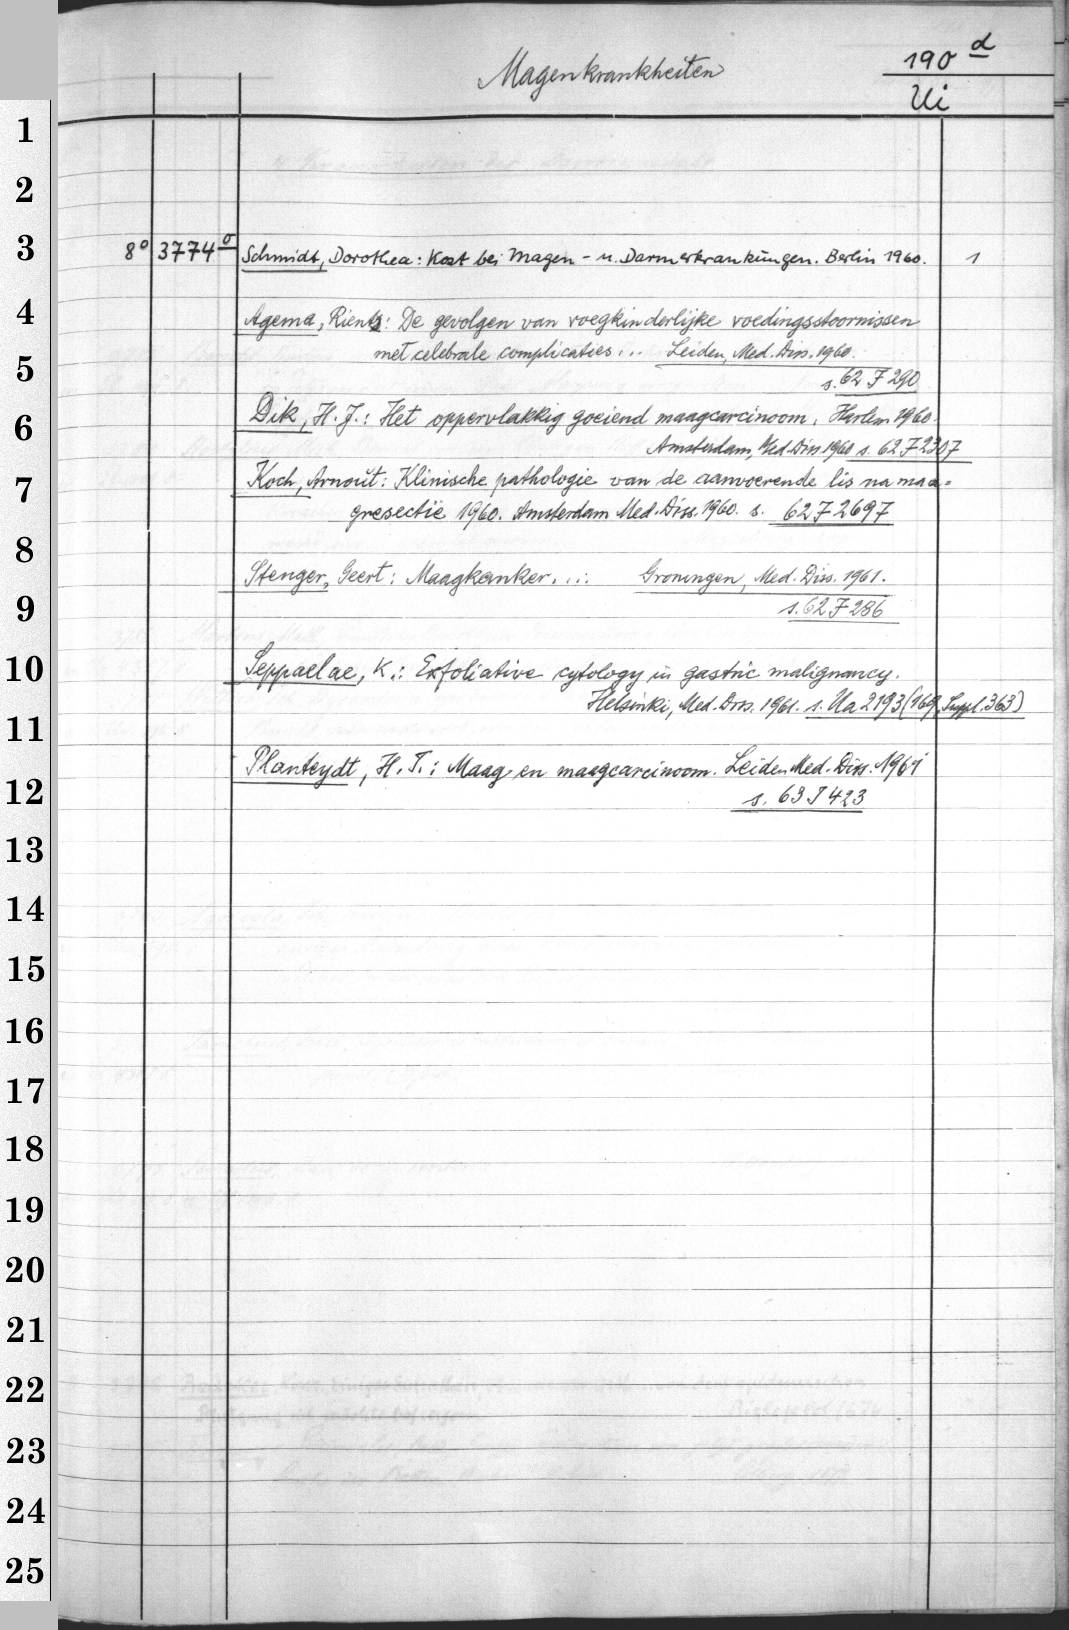 Magenkrankheiten
190 d
Ui
1
2
3
8° 3774 o Schmidt, Dorothea: Kost bei Magen- u. Darmerkrankungen. Berlin 1960. 1
4
Agema, Rients: De gevolgen van voegkinderlijke voedingsstoornissen
5
met celebrale complicaties... Leiden, Med. Diss. 1960.
s. 62 F 290
6
Dik, H. J.: Het oppervlakkig goeiend maagcarcinoom. Harlem 1960.
Amsterdam, Med. Diss 1960 s. 62 F 2307
7
Koch, Arnoŭt: Klinische pathologie van de aanvoerende lis na maa=
gresectie 1960. Amsterdam Med. Diss. 1960. s. 62 F 2697
8
Stenger, Geert: Maagkanker.... Groningen, Med. Diss. 1961.
9
s. 62 F 286
10
Seppaelae, K.: Exfoliative cytology in gastric malignancy.
Helsinki, Med. Diss. 1961. s. Ua 2193 (169, Suppl. 363)
11
Planteydt, H. T.: Maag en maagcarcinoom. Leiden Med. Diss. 1961
12
s. 63 F 423
13
14
15
16
17
18
19
20
21
22
23
24
25